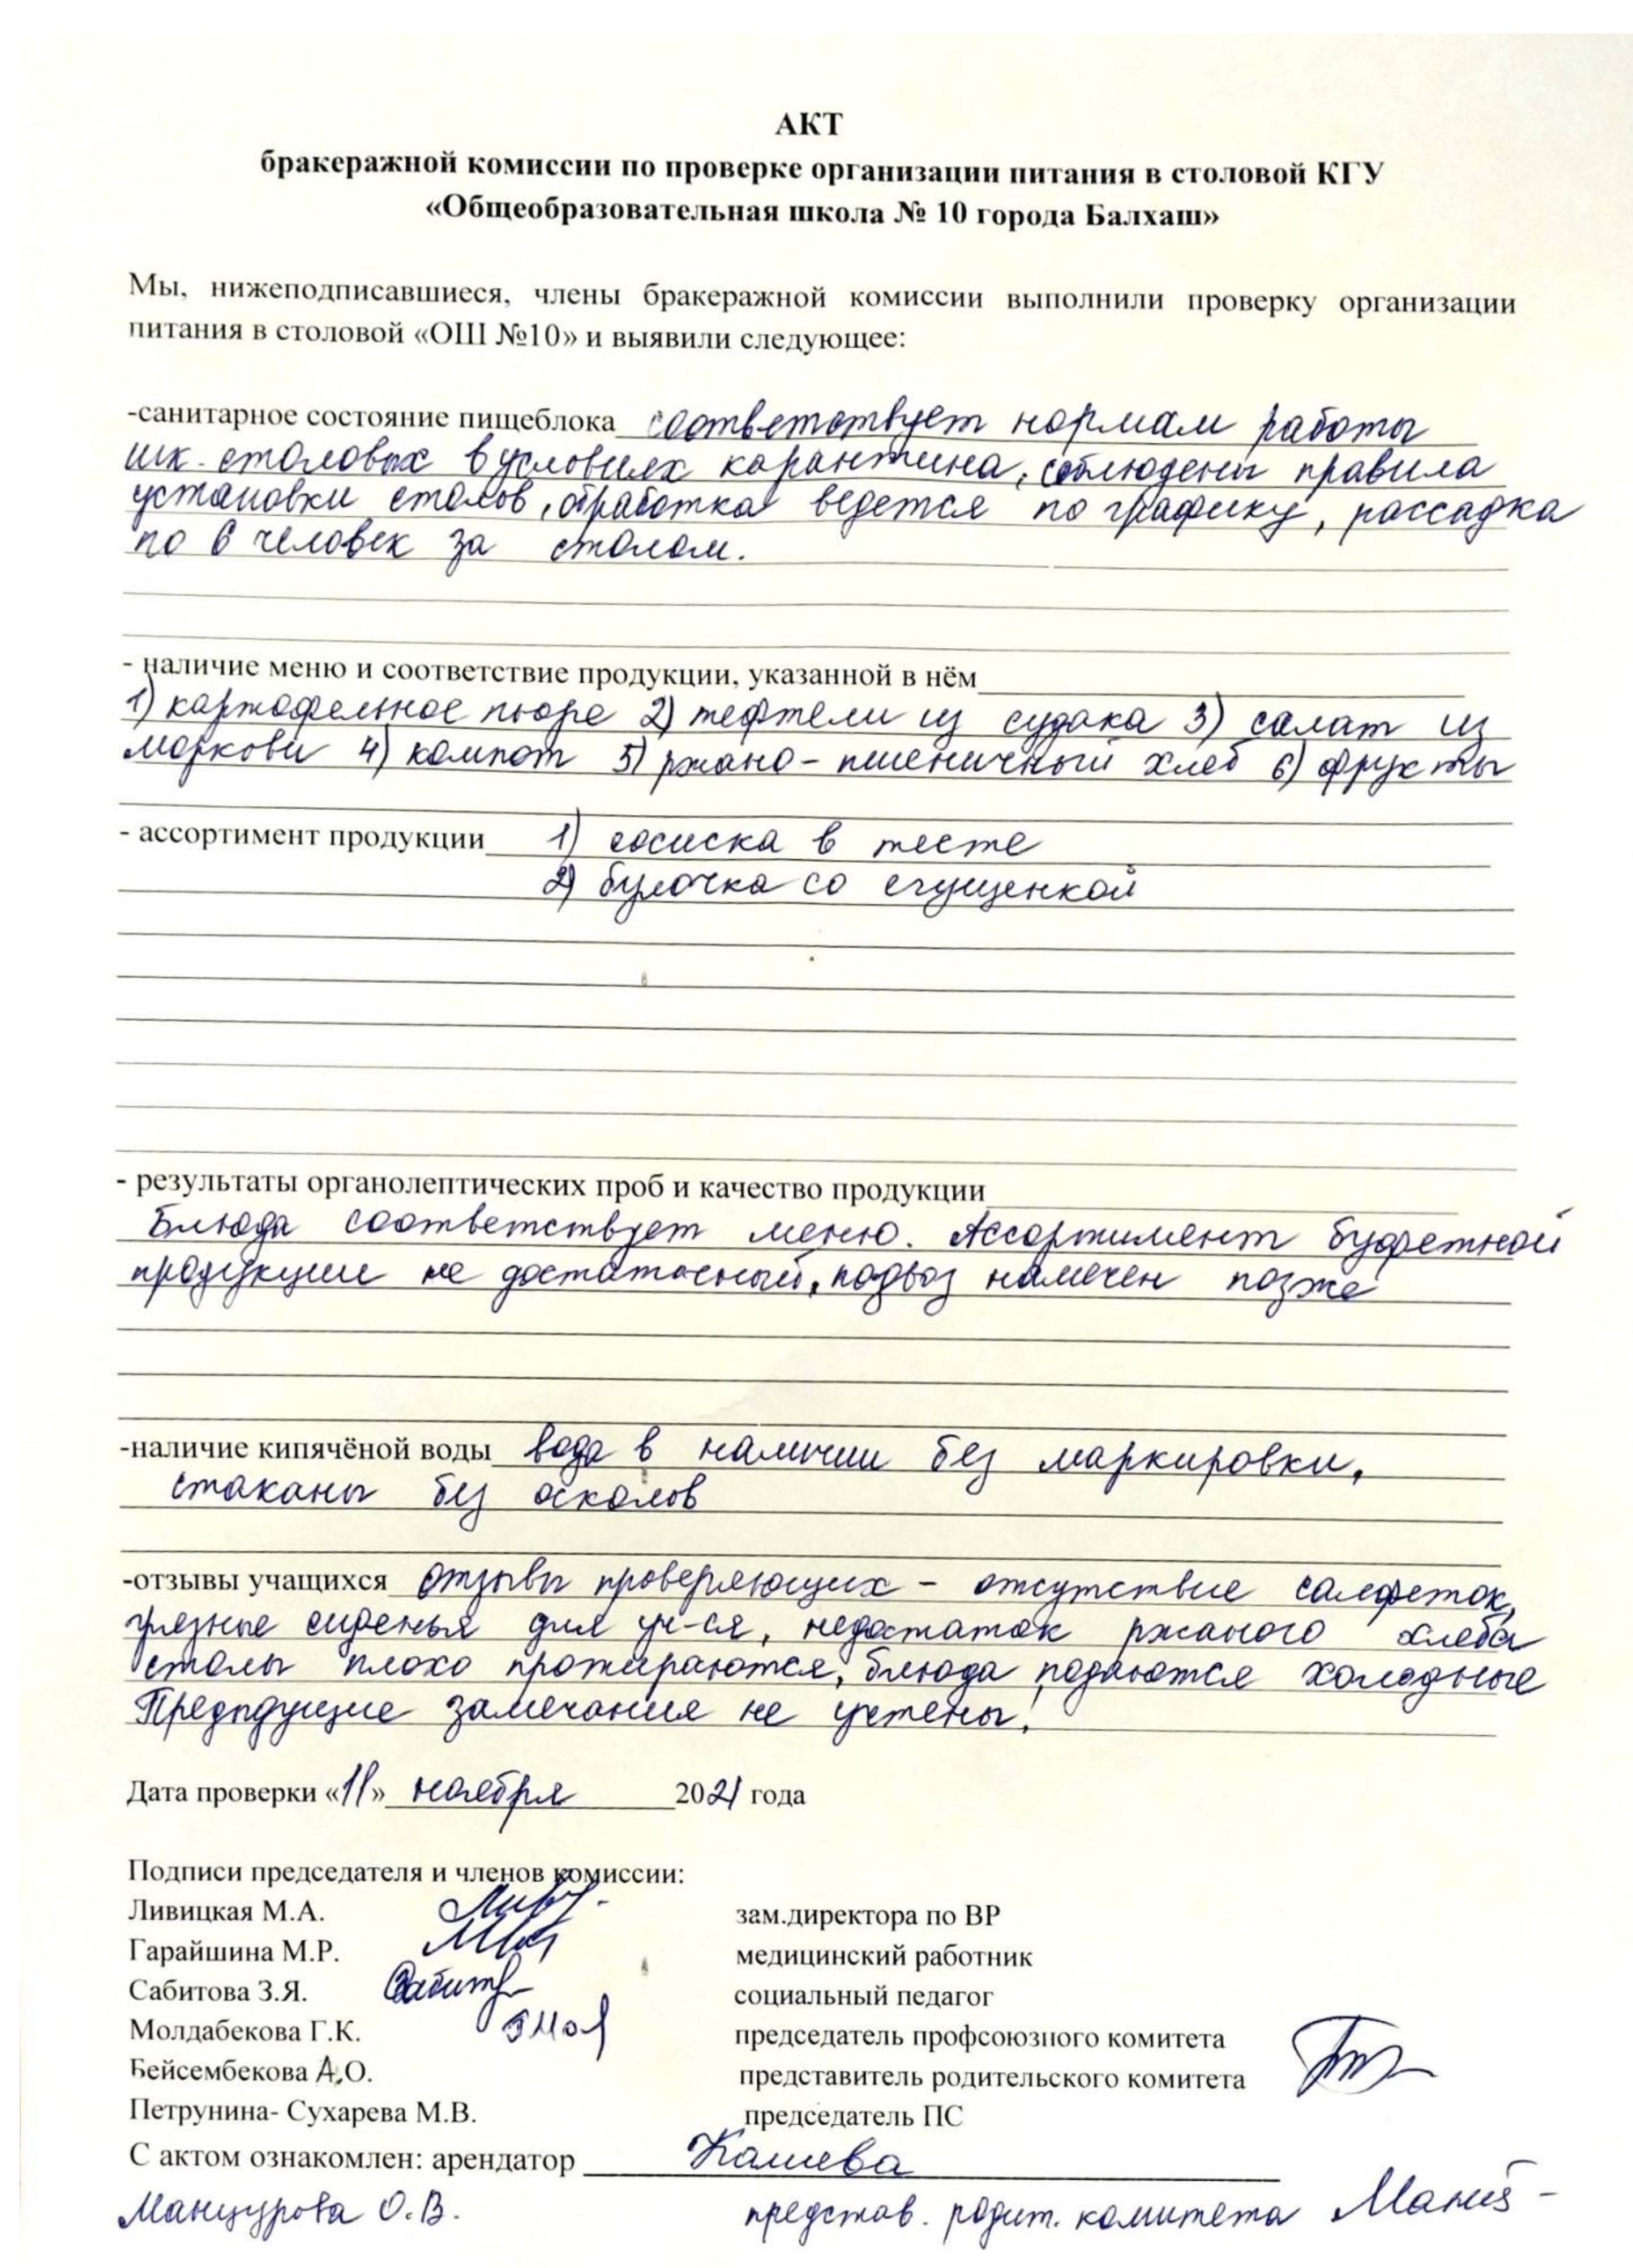 АКТ
бракеражной комиссии по проверке организации питания в столовой КГУ
«Общеобразовательная школа № 10 города Балхаш»
Мы, нижеподписавшиеся, члены бракеражной комиссии выполнили проверку организации
питания в столовой «ОШ №10» и выявили следующее:
-санитарное состояние пищеблока соответствует нормам работы
шк. столовых в условиях карантина, соблюдены правила
установки столов, обработка ведется по графику, рассадка
по 6 человек за столом.
- наличие меню и соответствие продукции, указанной в нём
1) картофельное пюре 2) тефтели из судака 3) салат из
моркови 4) компот 5) ржано-пшеничный хлеб 6) фрукты
- ассортимент продукции 1) сосиска в тесте
2) булочка со сгущенкой
- результаты органолептических проб и качество продукции
Блюда соответствует меню. Ассортимент буфетной
продукции не достаточный, подвоз намечен позже
-наличие кипячёной воды вода в наличии без маркировки,
стаканы без осколов
-отзывы учащихся отзывы проверяющих - отсутствие салфеток,
грязные сиденья для уч-ся, недостаток ржаного хлеба
столы плохо протираются, блюда подаются холодные
Предыдущие замечания не учтены!
Дата проверки «11» ноября 2021 года
Подписи председателя и членов комиссии:
Ливицкая М.А. зам.директора по ВР
Гарайшина М.Р. медицинский работник
Сабитова З.Я. социальный педагог
Молдабекова Г.К. председатель профсоюзного комитета
Бейсембекова А.О. представитель родительского комитета
Петрунина- Сухарева М.В. председатель ПС
С актом ознакомлен: арендатор
Манцурова О.В. представ. родит. комитета